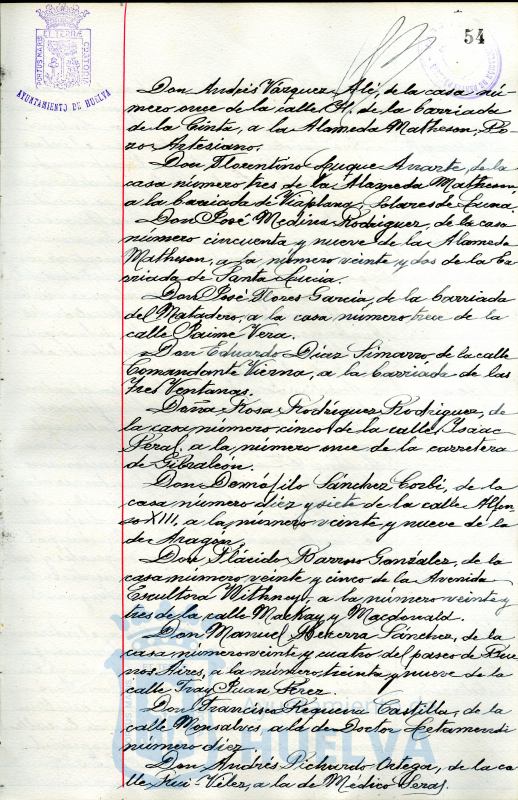 PORTUS MARIS
ET TERRÆ
CUSTODIA
AYUNTAMIENTO DE HUELVA
54
Don Andrés Vázquez Alé, de la casa nú-
mero once de la calle H. de la barriada
de la Cinta, a la Alameda Matheson, Po-
zo Artesiano.
Don Florentino Luque Anarte, de la
casa número tres de la Alameda Matheson,
a la barriada de Viaplana, Solares de Luna.
Don José Medina Rodríguez, de la casa
número cincuenta y nueve de la Alameda
Matheson, a la número veinte y dos de la ba-
rriada de Santa Lucía.
Don José Flores García, de la barriada
del Matadero, a la casa número trece de la
calle Jaime Vera.
Don Eduardo Díaz Simarro, de la calle
Comandante Vierna, a la barriada de las
Tres Ventanas.
Doña Rosa Rodríguez Rodríguez, de
la casa número cinco de la calle Isaac
Peral, a la número once de la carretera
de Gibraleón.
Don Demófilo Sánchez Corbi, de la
casa número diez y siete de la calle Alfon-
so XIII, a la número veinte y nueve de la
de Aragón.
Don Plácido Barroso González, de la
casa número veinte y cinco de la Avenida
Escultora Withney, a la número veinte y
tres de la calle Mackay y Macdonald.
Don Manuel Becerra Sánchez, de la
casa número veinte y cuatro del paseo de Bue-
nos Aires, a la número treinta y nueve de la
calle Fray Juan Pérez.
Don Francisco Requena Castilla, de la
calle Monsalves, a la de Doctor Letamendi
número diez.
Don Andrés Pichardo Ortega, de la ca-
lle Rui-Vélez, a la de Médico Seras.
Ayuntamiento de
HUELVA